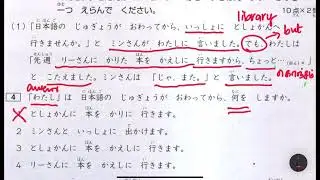 一つ えらんで ください。 10点×2
library
(1)「日本語の じゅぎょうが おわってから、いっしょに としょかんへ
but
行きませんか。」と ミンさんが わたしに 言いました。でも、わたしは
「先週 リーさんに かりた 本を かえしに 行きますから、ちょっと…。」
と こたえました。ミンさんは「じゃ、また。」と 言いました。
4 「わたし」は 日本語の じゅぎょうが おわってから、何を しますか。
1 としょかんに 本を かりに 行きます。
2 ミンさんと いっしょに 出かけます。
3 としょかんに 本を かえしに 行きます。
4 リーさんに 本を かえしに 行きます。